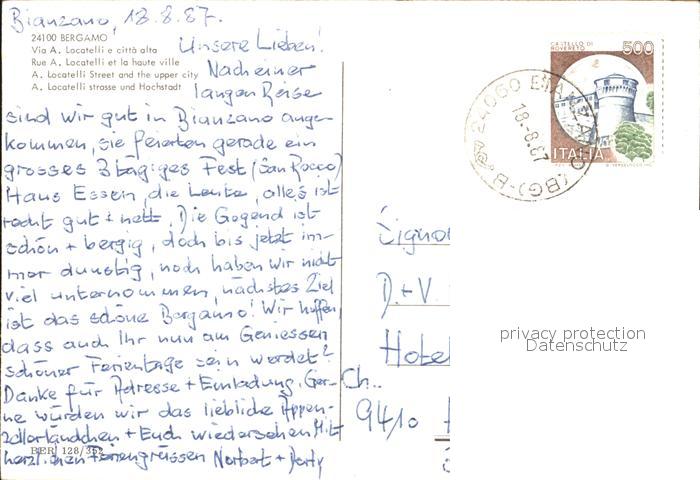 Bianzano, 18.8.87.
24100 BERGAMO
Via A. Locatelli e città alta
Rue A. Locatelli et la haute ville
A. Locatelli Street and the upper city
A. Locatelli strasse und Hochstadt
Unsere Lieben!
Nach einer
langen Reise
sind wir gut in Bianzano ange-
kommen, sie feierten gerade ein
grosses 3tägiges Fest (San Rocco)
Haus Essen, die Leute, alles ist
recht gut + nett. Die Gegend ist
schön + bergig, doch bis jetzt im-
mer dunstig, noch haben wir nicht
viel unternommen, nächstes Ziel
ist das schöne Bergamo! Wir hoffen,
dass auch Ihr nun am Geniessen
schöner Ferientage sein werdet?
Danke für Adresse + Einladung. Ger-
ne würden wir das liebliche Appen-
zellerländchen + Euch wiedersehen. Mit
herzlichen Feriengrüssen Norbert +
BER 128/352
CASTELLO DI
ROVERETO
500
ITALIA
24060
18-8.87
(BG)-B
Signor
D. + V.
Hote
Ch..
9410
privacy protection
Datenschutz